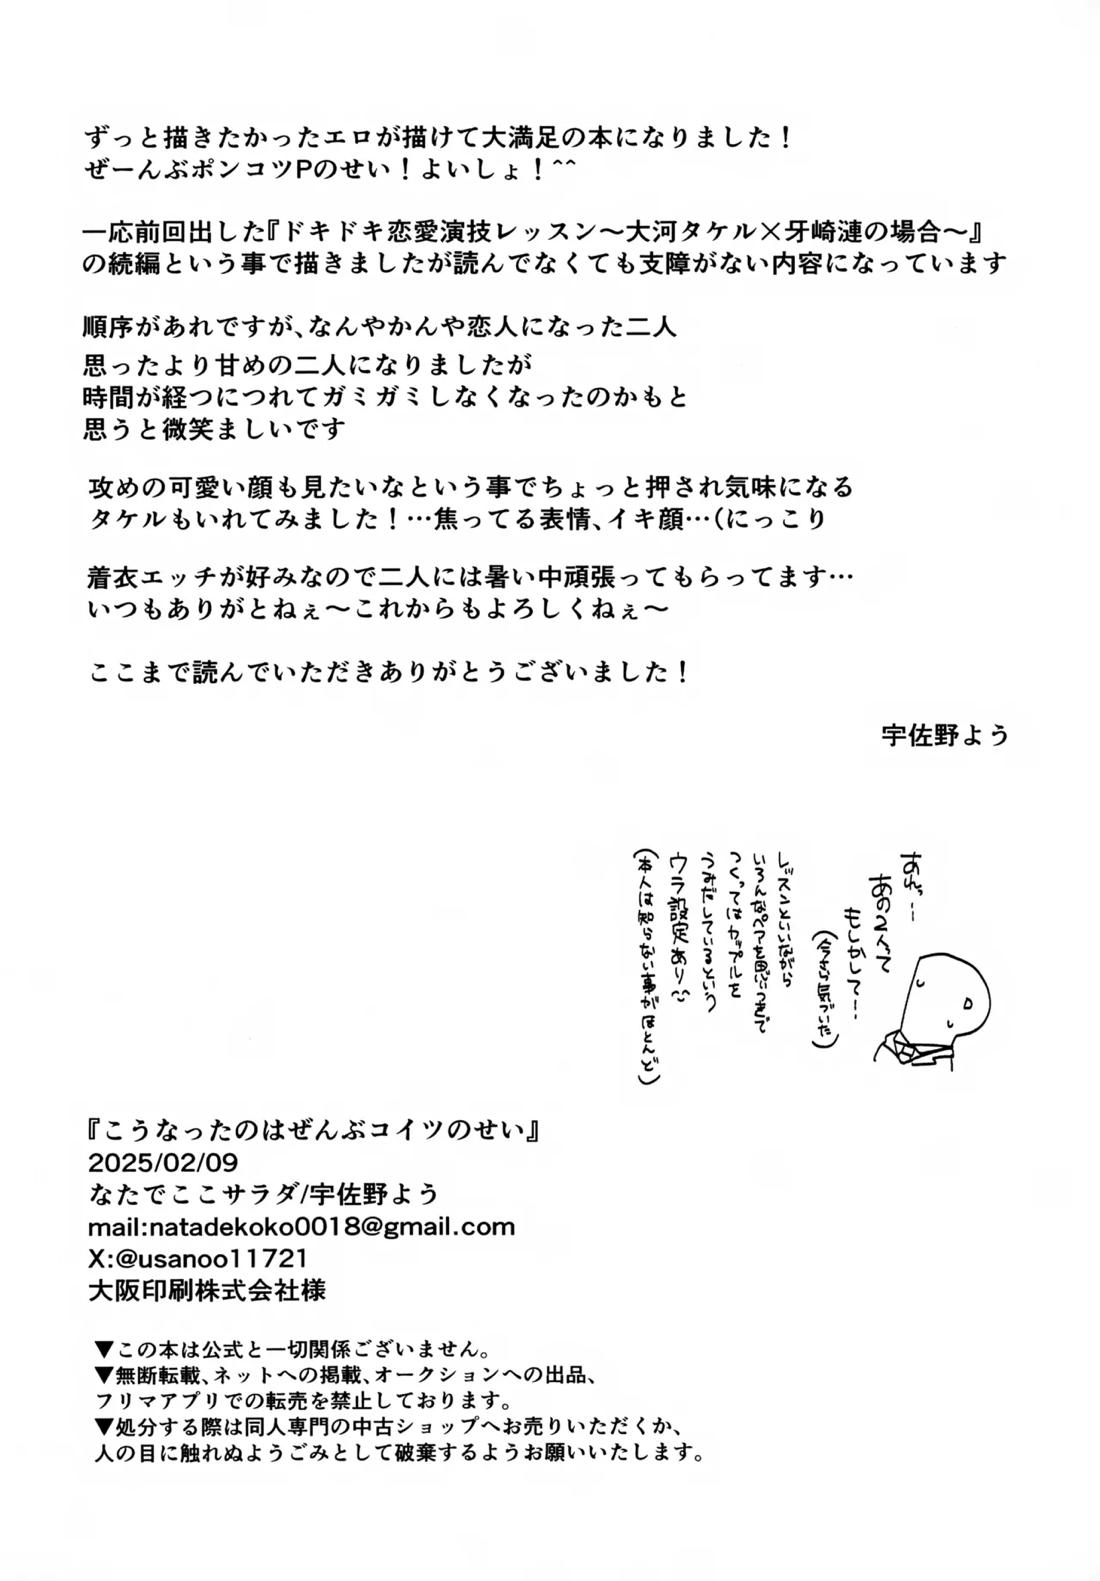 ずっと描きたかったエロが描けて大満足の本になりました！
ぜーんぶポンコツPのせい！よいしょ！^^
一応前回出した『ドキドキ恋愛演技レッスン～大河タケル×牙崎漣の場合～』
の続編という事で描きましたが読んでなくても支障がない内容になっています
順序があれですが、なんやかんや恋人になった二人
思ったより甘めの二人になりましたが
時間が経つにつれてガミガミしなくなったのかもと
思うと微笑ましいです
攻めの可愛い顔も見たいなという事でちょっと押され気味になる
タケルもいれてみました！…焦ってる表情、イキ顔…（にっこり
着衣エッチが好みなので二人には暑い中頑張ってもらってます…
いつもありがとねぇ～これからもよろしくねぇ～
ここまで読んでいただきありがとうございました！
宇佐野よう
あれっ…
あの2人って
もしかして…
（今さら気づいた）
レッスンといいながら
いろんなペアを思いつきで
つくってはカップルを
うみだしているという
ウラ設定あり
（本人は知らない事がほとんど）
『こうなったのはぜんぶコイツのせい』
2025/02/09
なたでここサラダ/宇佐野よう
mail:natadekoko0018@gmail.com
X:@usanoo11721
大阪印刷株式会社様
▼この本は公式と一切関係ございません。
▼無断転載、ネットへの掲載、オークションへの出品、
フリマアプリでの転売を禁止しております。
▼処分する際は同人専門の中古ショップへお売りいただくか、
人の目に触れぬようごみとして破棄するようお願いいたします。